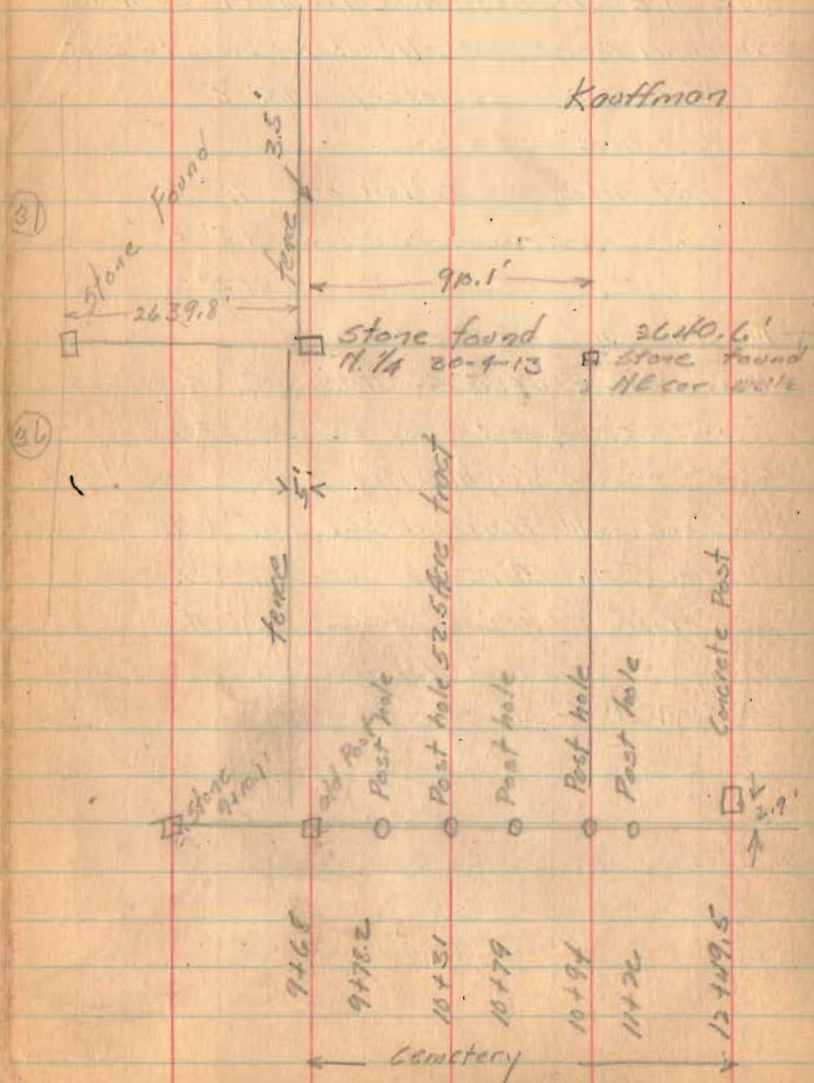 Kauffman
3.5'
fence
31
Stone Found
910.1'
2639.8'
Stone found
N. 1/4 30-9-13
2640.6'
Stone found
NE cor.
36
5'
fence
52.5 Acre tract
Old Post
Post hole
Post hole
Post hole
Post hole
Post hole
Concrete Post
Stone
9+10.1'
2.9'
9+68
9+78.2
10+31
10+79
10+94
11+26
12+49.5
Cemetery